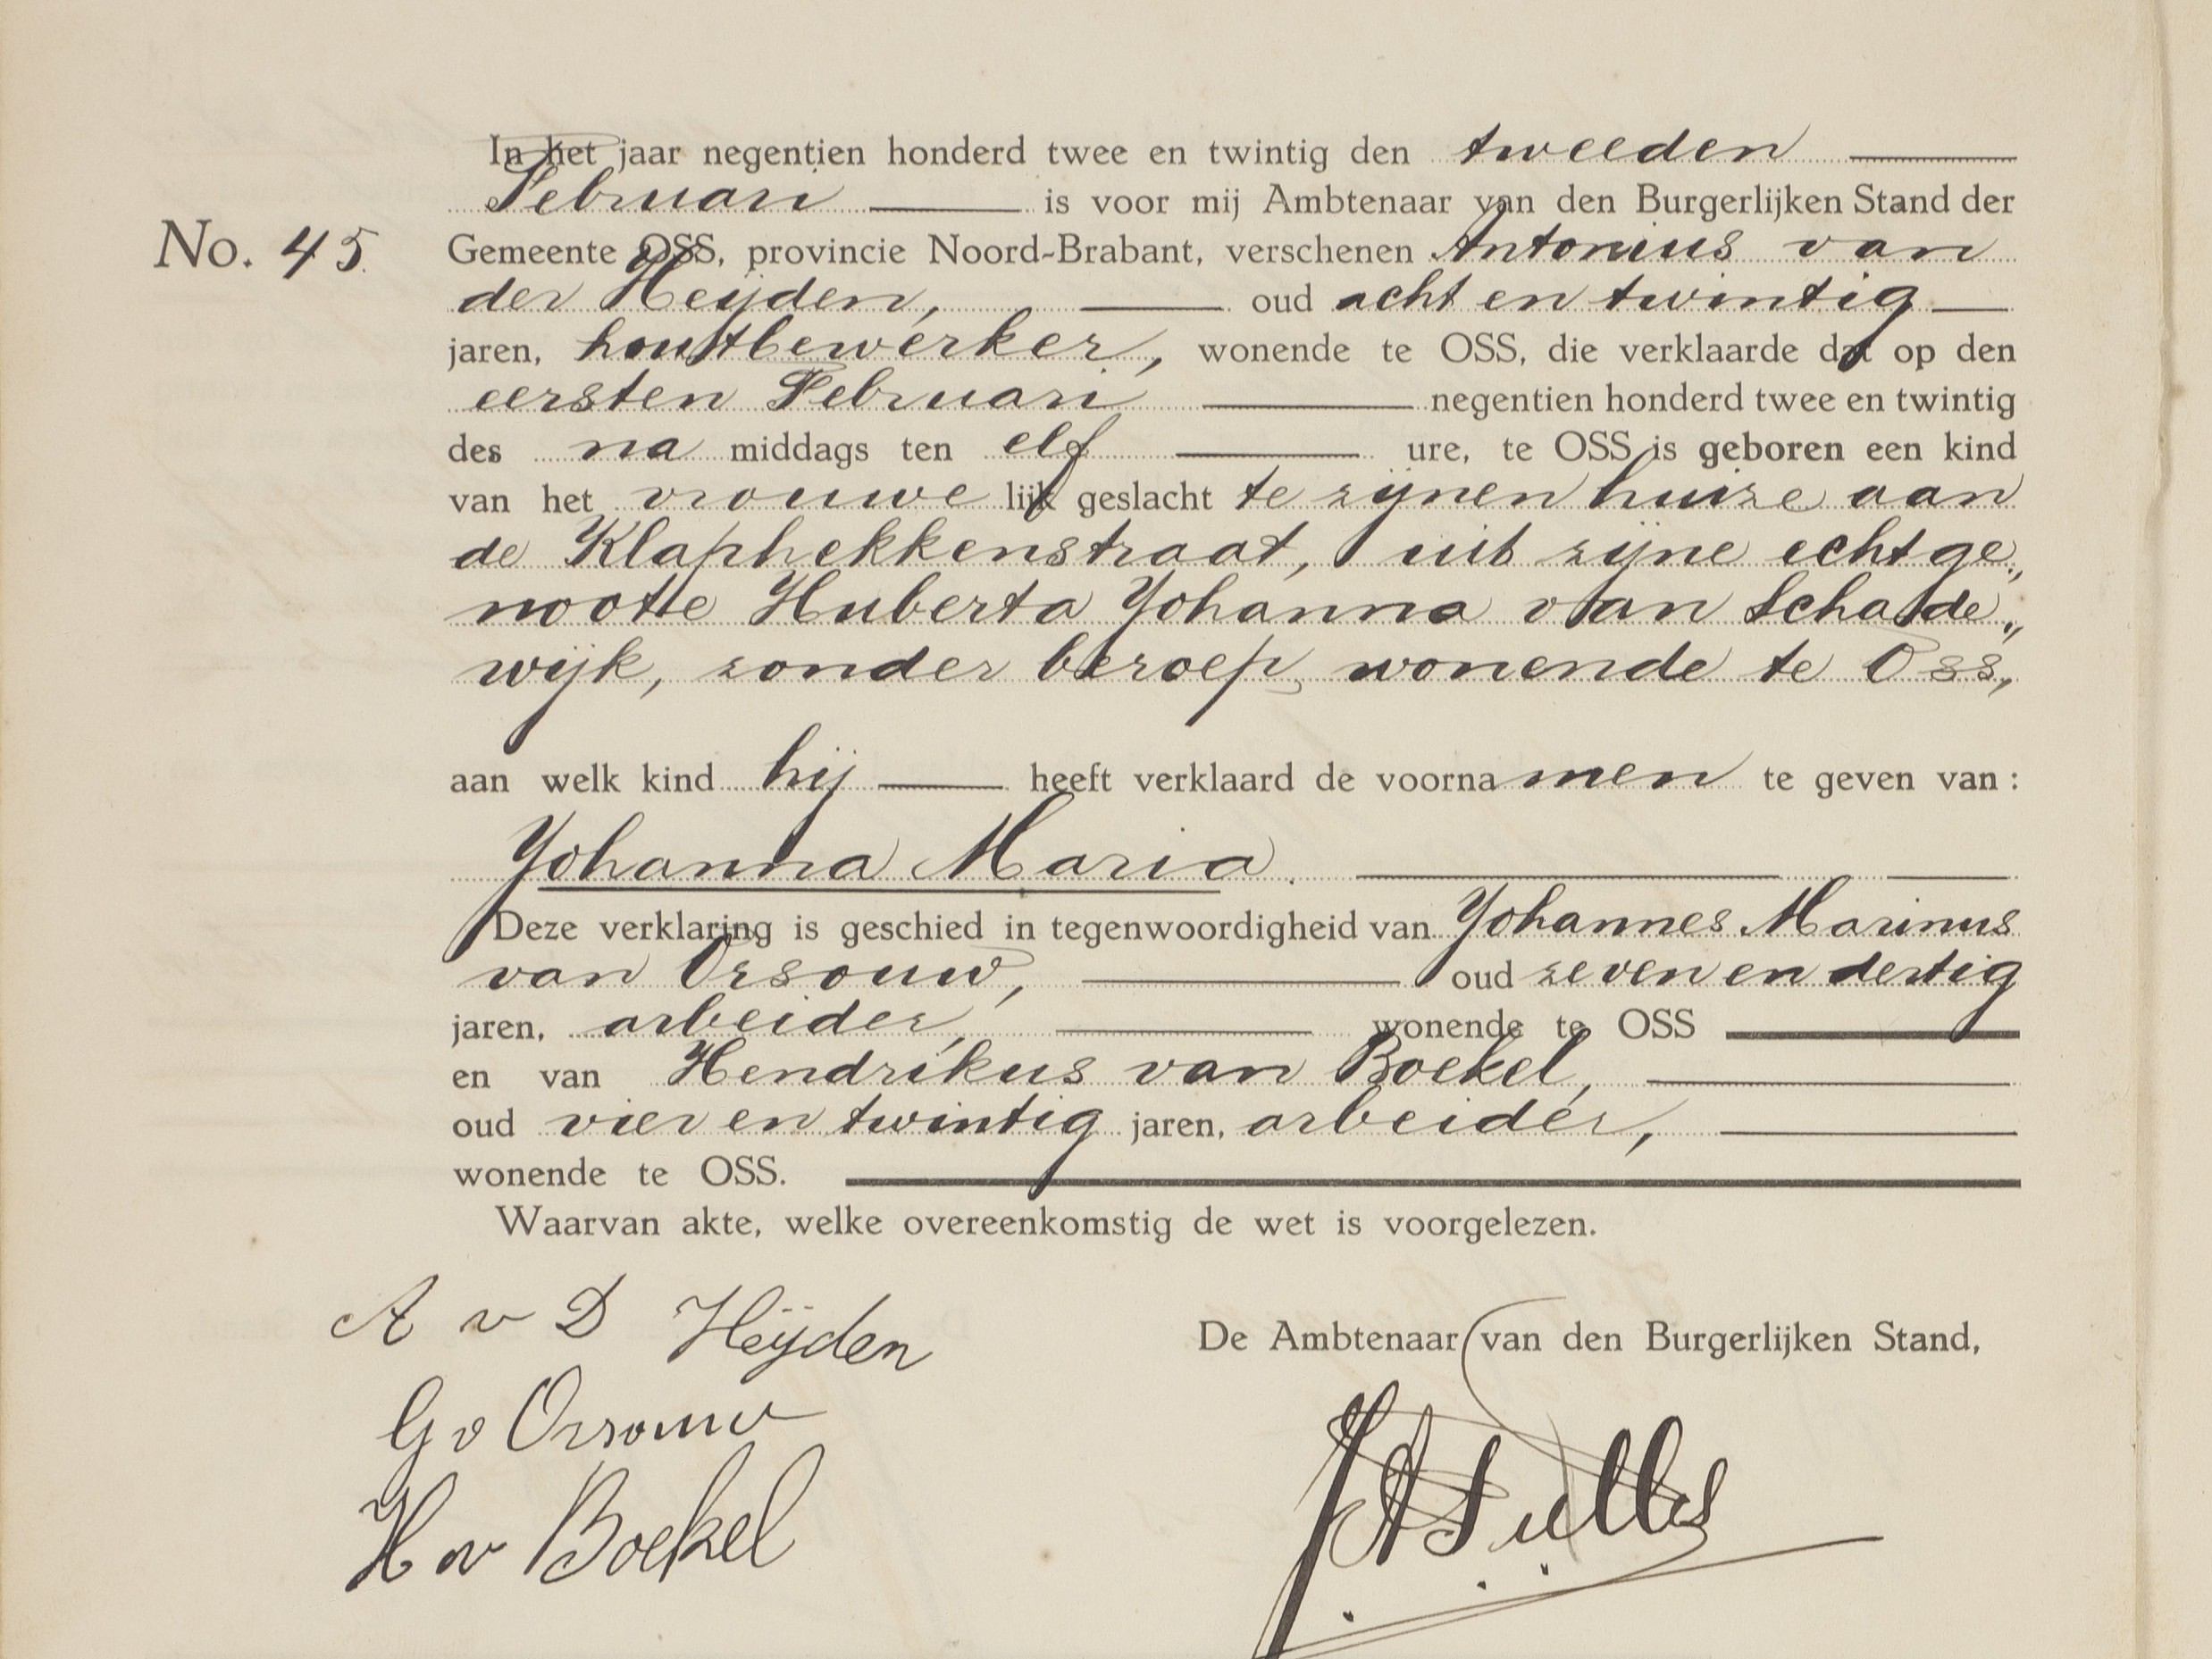 In het jaar negentien honderd twee en twintig den tweeden
Februari is voor mij Ambtenaar van den Burgerlijken Stand der
No. 45. Gemeente OSS, provincie Noord-Brabant, verschenen Antonius van
der Heijden, oud acht en twintig
jaren, houtbewerker, wonende te OSS, die verklaarde dat op den
eersten Februari negentien honderd twee en twintig
des na middags ten elf ure, te OSS is geboren een kind
van het vrouwe lijk geslacht te zijnen huize aan
de Klaphekkenstraat, uit zijne echtge„
noote Huberta Johanna van Schade„
wijk, zonder beroep, wonende te Oss,
aan welk kind hij heeft verklaard de voornamen te geven van:
Johanna Maria.
Deze verklaring is geschied in tegenwoordigheid van Johannes Marinus
van Orsouw, oud zeven en dertig
jaren, arbeider, wonende te OSS
en van Hendrikus van Boekel,
oud vier en twintig jaren, arbeider,
wonende te OSS.
Waarvan akte, welke overeenkomstig de wet is voorgelezen.
A v D Heijden
De Ambtenaar van den Burgerlijken Stand,
G v Orsouw
H v Boekel